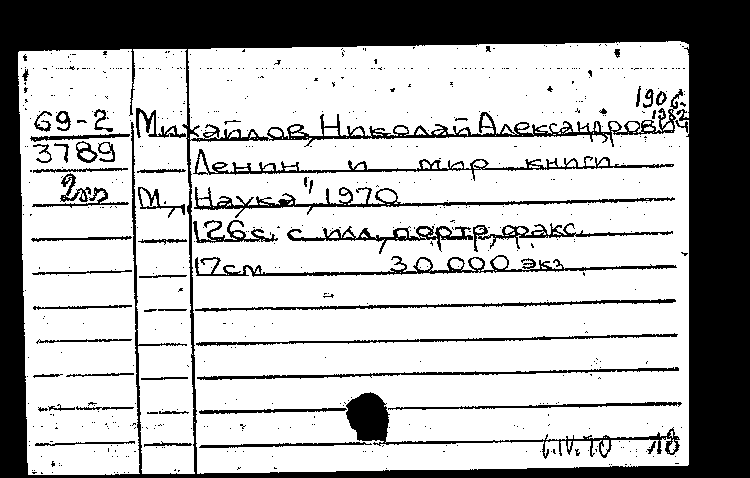 1906
1982
69-2 Михайлов, Николай Александрович
3789 Ленин и мир книги.
2 экз М., „Наука", 1970
126 с. с илл., портр., факс.
17см 30.000 экз.
6.IV.70 18